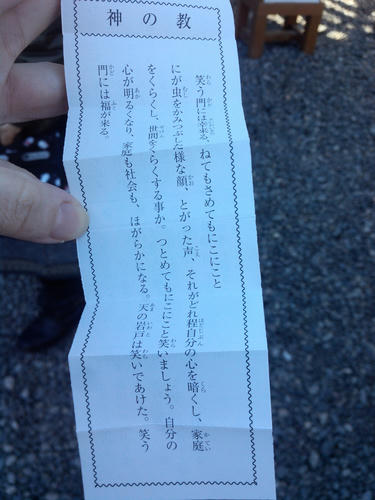 神の教
笑う門には幸来る、ねてもさめてもにこにこと
にが虫をかみつぶした様な顔、とがった声、それがどれ程自分の心を暗くし、家庭
をくらくし、世間をくらくする事か。つとめてもにこにこと笑いましょう。自分の
心が明るくなり、家庭も社会も、ほがらかになる。天の岩戸は笑いであけた。笑う
門には福が来る。